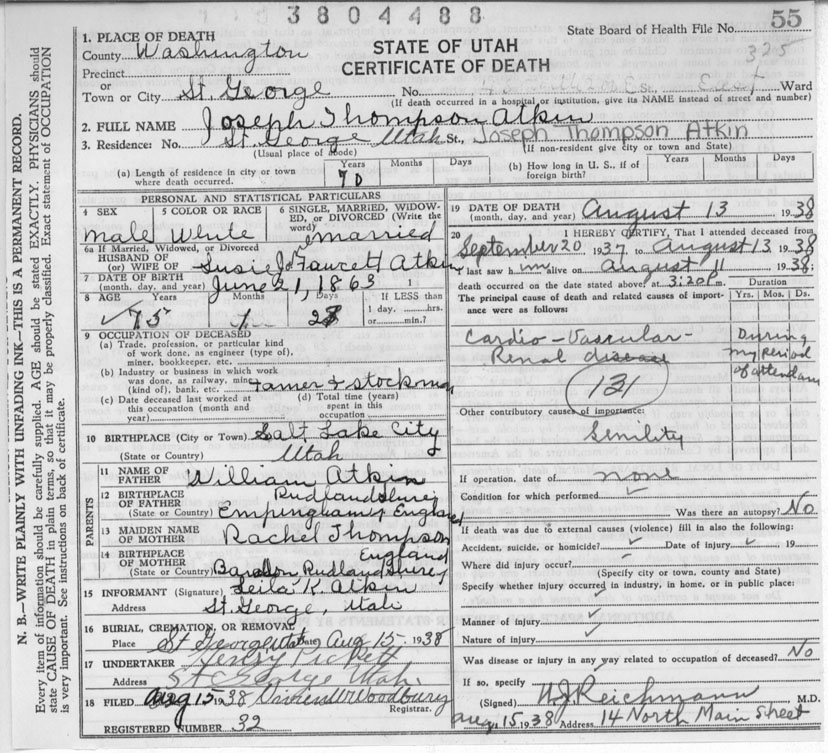 3804488
State Board of Health File No. 55
1. PLACE OF DEATH
STATE OF UTAH
CERTIFICATE OF DEATH
325
County Washington
Precinct
or
Town or City St. George No. St. Ward
(If death occurred in a hospital or institution, give its NAME instead of street and number)
2. FULL NAME Joseph Thompson Atkin
3. Residence: No. St. George Utah St., Joseph Thompson Atkin
(Usual place of abode) (If non-resident give city or town and State)
(a) Length of residence in city or town where death occurred. Years 70 Months Days
(b) How long in U. S., if of foreign birth? Years Months Days
PERSONAL AND STATISTICAL PARTICULARS
4 SEX Male
5 COLOR OR RACE White
6 SINGLE, MARRIED, WIDOWED, or DIVORCED (Write the word) married
6a If Married, Widowed, or Divorced
HUSBAND OF
(or) WIFE OF Susie Fawcett Atkin
7 DATE OF BIRTH
(month, day, and year) June 21, 1863
8 AGE Years 75 Months 1 Days If LESS than
1 day, hrs.
or min.?
9 OCCUPATION OF DECEASED
(a) Trade, profession, or particular kind
of work done, as engineer (type),
miner, bookkeeper, etc.
(b) Industry or business in which work
was done, as railway, mine
(kind of), bank, etc. Farmer & stockman
(c) Date deceased last worked at
this occupation (month and
year)
(d) Total time (years)
spent in this
occupation
10 BIRTHPLACE (City or Town) Salt Lake City
(State or Country) Utah
PARENTS
11 NAME OF
FATHER William Atkin
12 BIRTHPLACE
OF FATHER
(State or Country) Rudlandshire
Empingham, England
13 MAIDEN NAME
OF MOTHER Rachel Thompson
14 BIRTHPLACE
OF MOTHER England
(State or Country) Rudlandshire
15 INFORMANT (Signature) Leila K. Atkin
Address St. George, Utah
16 BURIAL, CREMATION, OR REMOVAL
Place St George Utah Date Aug 15 1938
17 UNDERTAKER Henry Pickett
Address St George Utah
18 FILED Aug 15 1938 Woodbury
Registrar.
REGISTERED NUMBER 32
19 DATE OF DEATH
(month, day, and year) August 13 1938
20 I HEREBY CERTIFY, That I attended deceased from
September 20 1937 to August 13 1938
I last saw him alive on August 11 1938
death occurred on the date stated above, at 3:20 p.m.
The principal cause of death and related causes of importance were as follows:
Duration
Yrs. Mos. Ds.
Cardio-Vascular-
Renal disease
During
my period
of attendance
131
Other contributory causes of importance:
Senility
If operation, date of none
Condition for which performed
Was there an autopsy? No
If death was due to external causes (violence) fill in also the following:
Accident, suicide, or homicide? Date of injury 19
Where did injury occur?
(Specify city or town, county and State)
Specify whether injury occurred in industry, in home, or in public place:
Manner of injury
Nature of injury
Was disease or injury in any way related to occupation of deceased? No
If so, specify
(Signed) H.J. Reichmann M.D.
Aug. 15 1938 Address 14 North Main Street
N. B.—WRITE PLAINLY WITH UNFADING INK—THIS IS A PERMANENT RECORD.
Every item of information should be carefully supplied. AGE should be stated EXACTLY. PHYSICIANS should
state CAUSE OF DEATH in plain terms, so that it may be properly classified. Exact statement of OCCUPATION
is very important. See instructions on back of certificate.